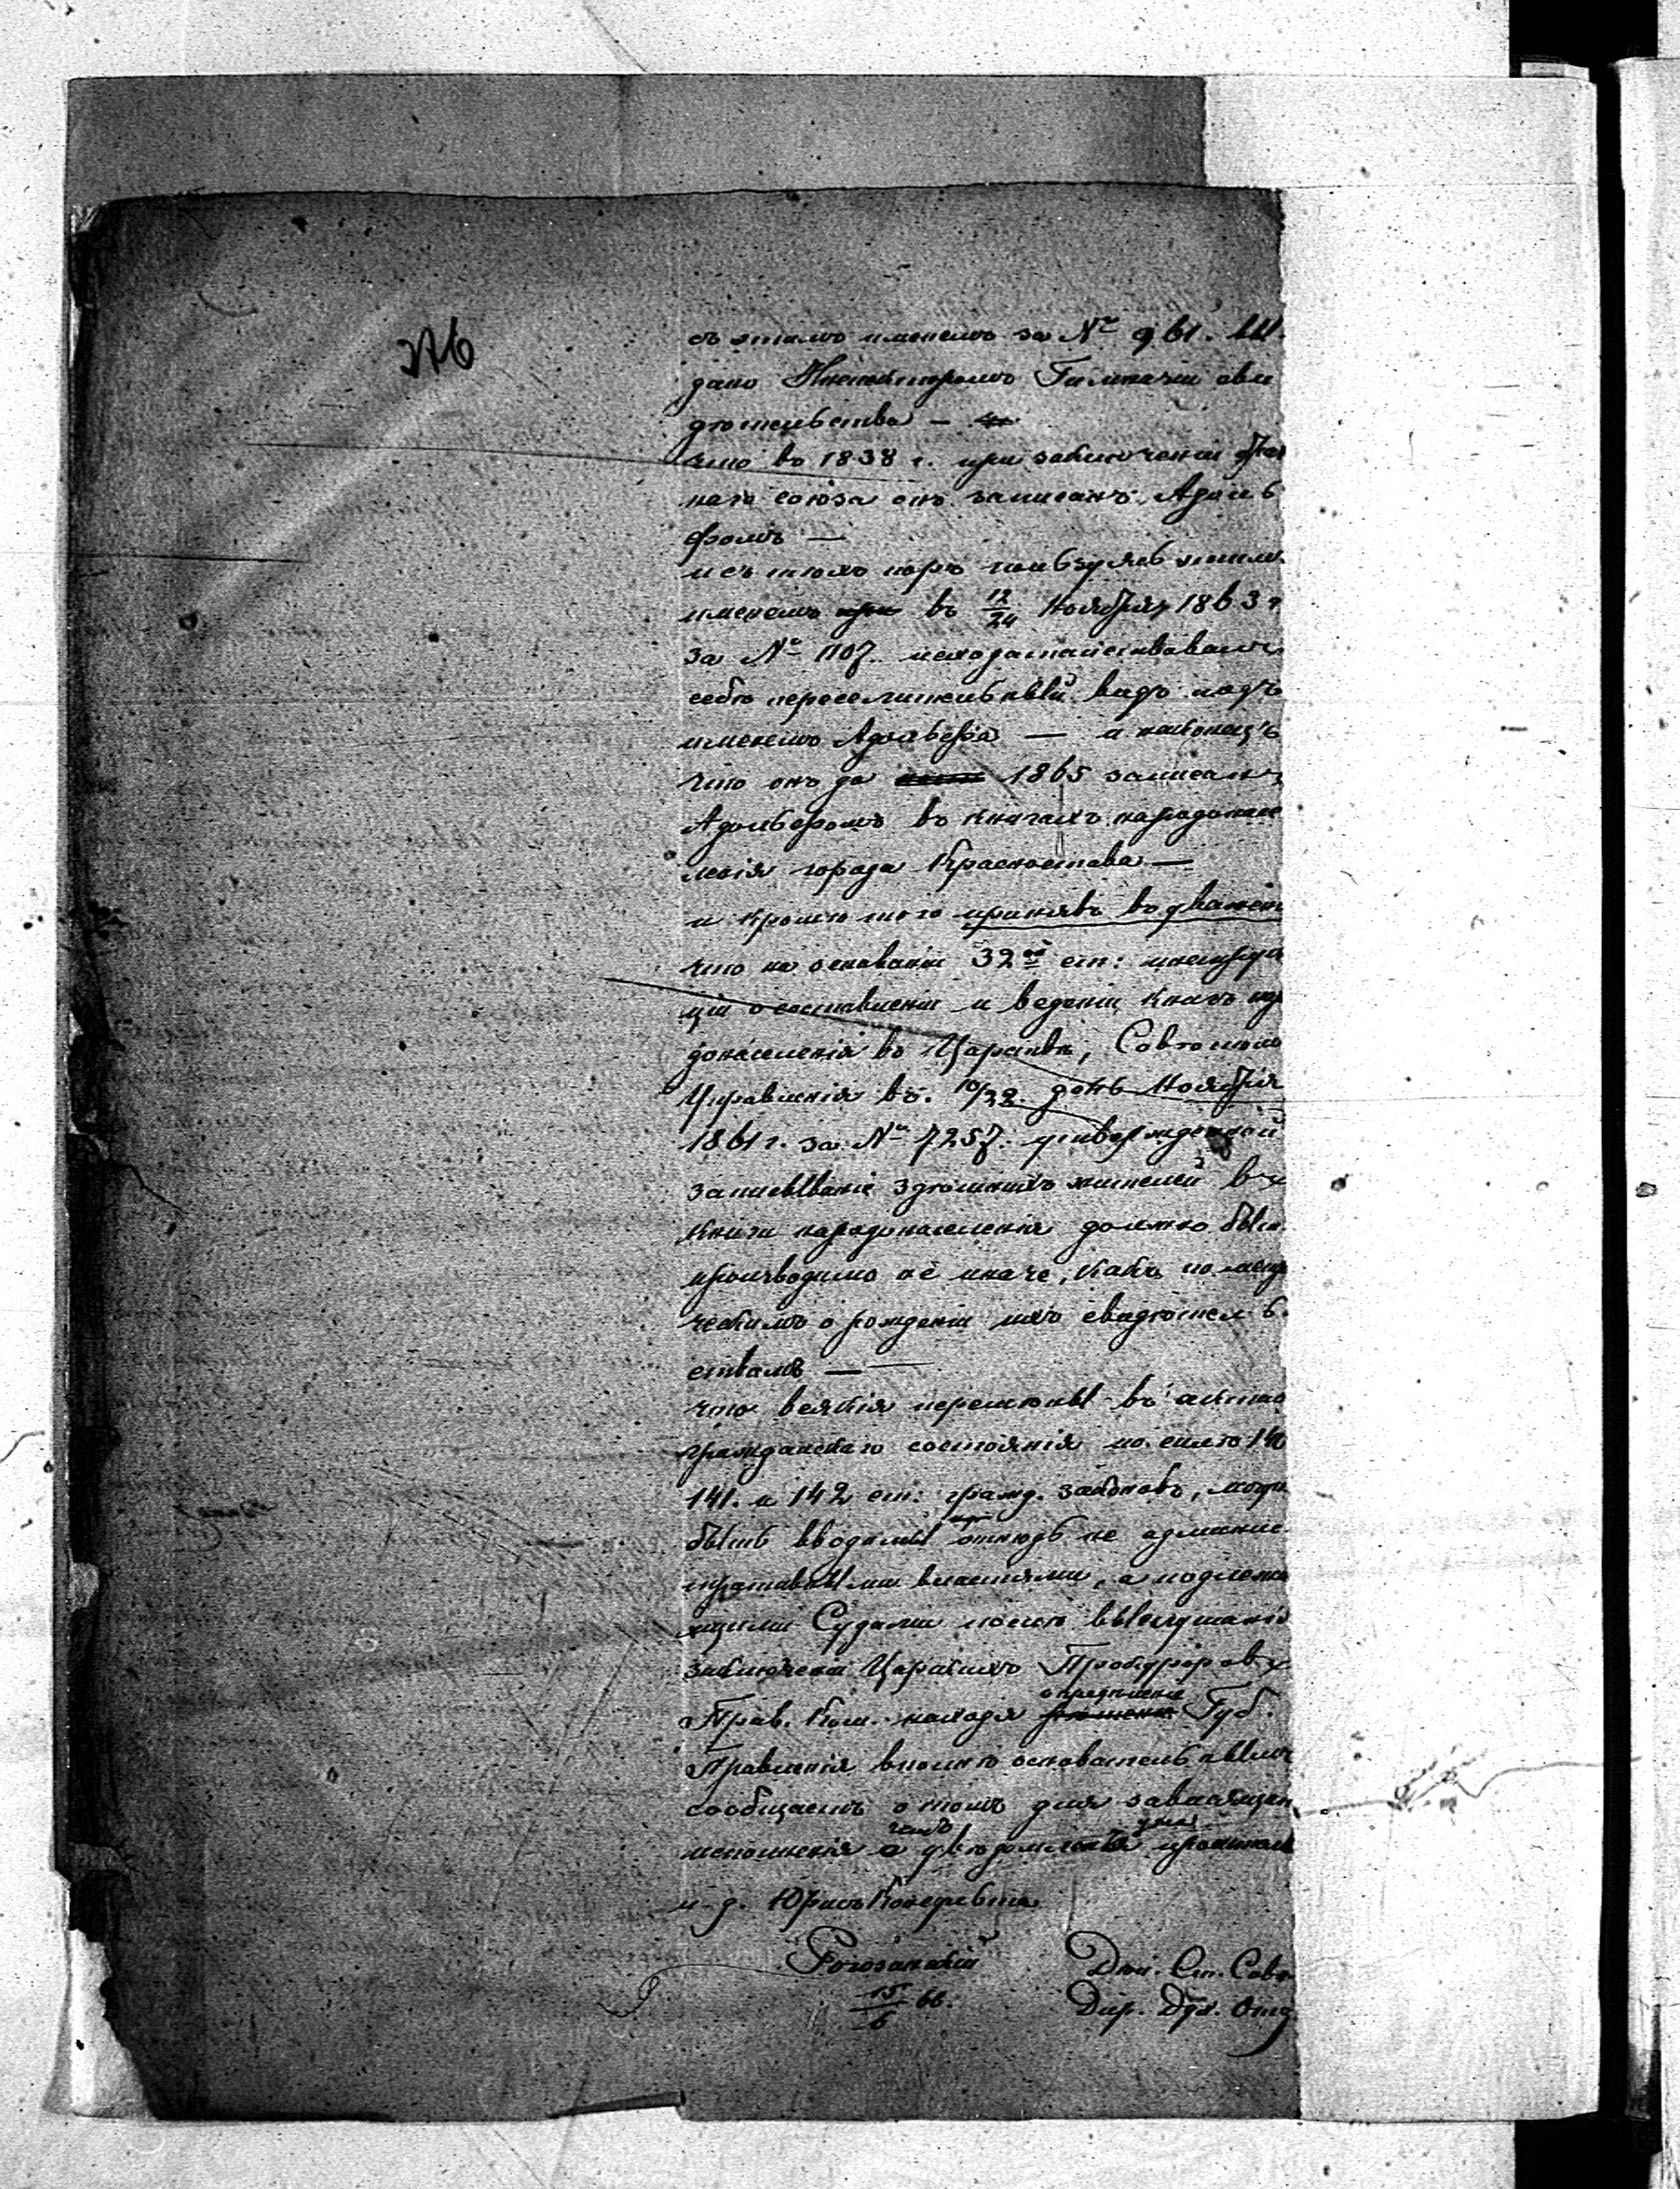 376
съ этимъ именемъ за № 961. вы-
дано Инспекторомъ Гимназіи сви
дѣтельства —
что въ 1838 г. при заключеніи брач
наго союза онъ записанъ Адоль
фомъ —
и съ тѣхъ поръ пользуясь этимъ
именемъ въ 12/24 Ноября 1863 г
за № 1107. исходатайствовалъ
себѣ переселительный видъ подъ
именемъ Адольфа — и наконецъ
что онъ до 1865 записанъ
Адольфомъ въ книгахъ народонасе
ленія города Красностава —
и кромѣ того принявъ во вниманіе
что на основаніи 32ой ст: инструк
ціи о составленіи и веденіи книгъ наро
донаселенія въ Царствѣ, Совѣтомъ
Управленія въ 10/22 день Ноября
1861 г. за № 7257. утвержденной
записываніе здѣшнихъ жителей въ
книги народонаселенія должно быть
производимо не иначе, какъ по метри
ческимъ о рожденіи ихъ свидѣтель-
ствамъ —
что всякія перемѣны въ актахъ
гражданскаго состоянія по силѣ 140
141. и 142 ст: гражд. законовъ, могутъ
быть вводимы отнюдь не админис-
тративными властями, а подлежа
щими Судами послѣ выслушанія
заключенія Царскихъ Прокуроровъ
Прав. Ком. находя опредѣленіе Губ.
Правленія вполнѣ основательнымъ
сообщаетъ о томъ для зависящаго
исполненія и увѣдомленія
и. д. Юрисъ Консульта
15/6 66.
Дѣй. Ст. Совѣ.
Дир. Дух. Отд